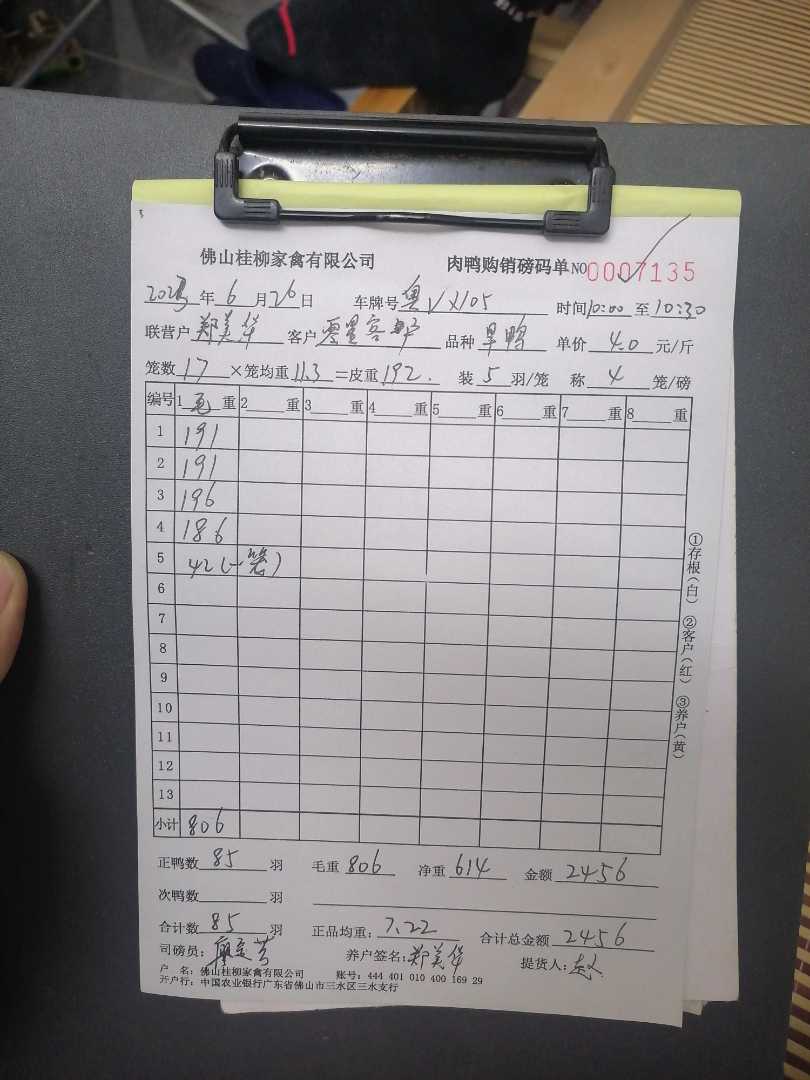 佛山桂柳家禽有限公司 肉鸭购销磅码单 NO 0007135
2023年6月26日 车牌号 粤VX105 时间10:00至10:30
联营户 郑美华 客户 零星客户 品种 旱鸭 单价 4.0 元/斤
笼数 17 ×笼均重 11.3 =皮重 192. 装 5 羽/笼 称 4 笼/磅
编号 1 毛 重 2 重 3 重 4 重 5 重 6 重 7 重 8 重
1 191
2 191
3 196
4 186
5 42(一笼)
6
7
8
9
10
11
12
13
小计 806
①存根(白) ②客户(红) ③养户(黄)
正鸭数 85 羽 毛重 806 净重 614 金额 2456
次鸭数 羽
合计数 85 羽 正品均重: 7.22 合计总金额 2456
司磅员: 养户签名: 郑美华 提货人: 赵
户 名: 佛山桂柳家禽有限公司 账号: 444 401 010 400 169 29
开户行: 中国农业银行广东省佛山市三水区三水支行